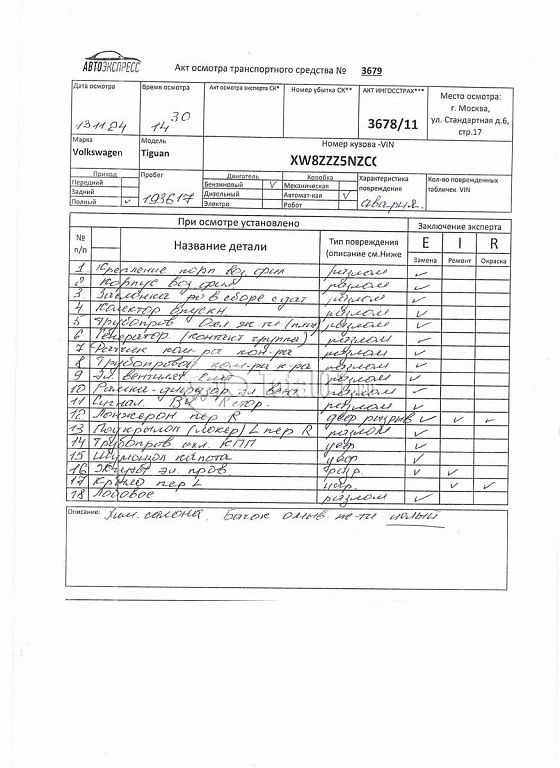 АВТОЭКСПРЕСС
Акт осмотра транспортного средства № 3679
Дата осмотра
13 11 24
Время осмотра
14 30
Акт осмотра эксперта СК*
Номер убытка СК**
АКТ ИНГОССТРАХ***
3678/11
Место осмотра:
г. Москва,
ул. Стандартная д.6,
стр.17
Марка
Volkswagen
Модель
Tiguan
Номер кузова -VIN
XW8ZZZ5NZC
Привод
Передний
Задний
Полный
Пробег
193617
Двигатель
Бензиновый V
Дизельный
Электро
Коробка
Механическая
Автомат-кая V
Робот
Характеристика
повреждения
авария.
Кол-во поврежденных
табличек VIN
При осмотре установлено
Заключение эксперта
№
п/п
Название детали
Тип повреждения
(описание см.Ниже
E I R
Замена Ремонт Окраска
1 Крепление корп воз фил разлом
2 Корпус воз фил разлом
3 Заслонка в сборе разлом
4 Колектор впускн разлом
5 Трубопров охл ж-ти разлом
6 Генератор. (контакт группа) разлом
7 Датчик разлом
8 Трубопровод разлом
9 Эл вентилят разлом
10 Рамка-диффузор эл вент разлом
11 Сигнал. R стор. разлом
12 Лонжерон пер R разрыв
13 Подкрылок (локер) L пер R разлом
14 Трубопров охл. КПП деф
15 Шумоизол капота деф
16 Жгуты эл. пров разр.
17 Крыло пер L деф.
18 Лобовое разлом
Описание: Хим. салона. Бачок омыв. ж-ти целый